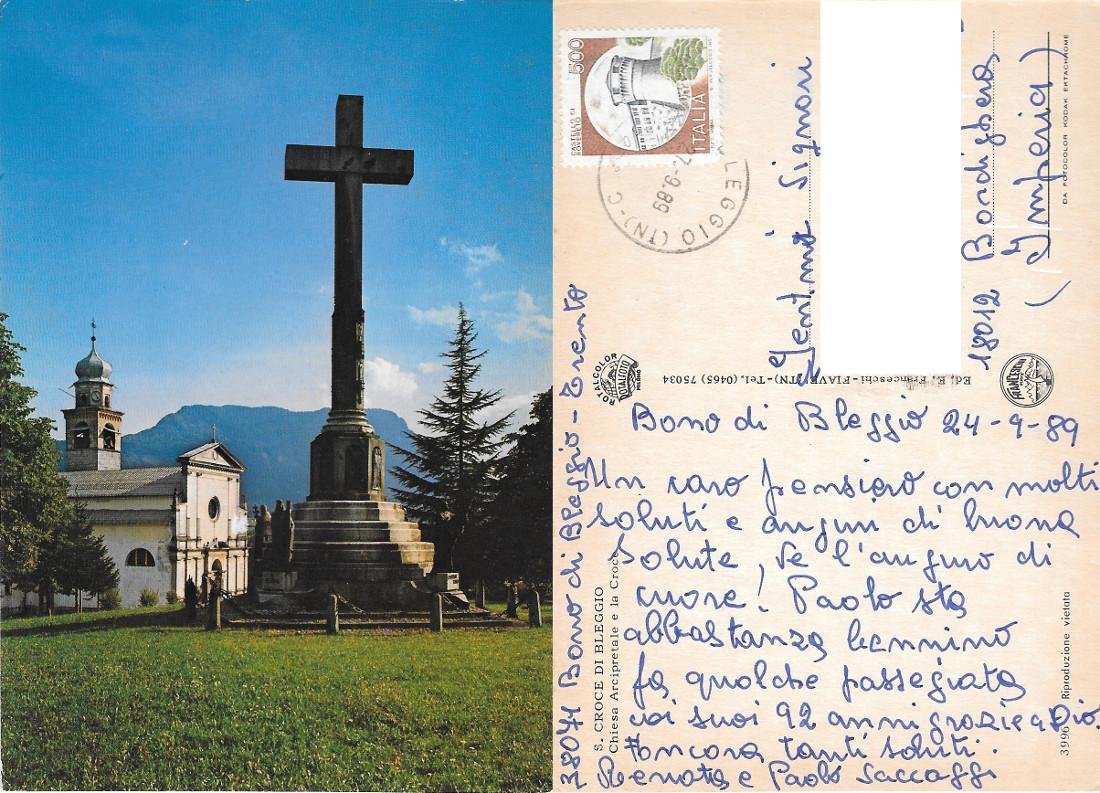 500
CASTELLO DI
ROVERETO
ITALIA
LEGGIO (TN) - C
-9.89
Gentimi Signori
18012 Bordighera
(Imperia)
DA FOTOCOLOR KODAK EKTACHROME
Ed. E. Franceschi - FIAVE' (TN) - Tel. (0465) 75034
ROTALCOLOR
ROTALFOTO
MILANO
FRANCESCHI
Bono di Bleggio 24-9-89
Un caro pensiero con molti
saluti e auguri di buona
salute, ve l'auguro di
cuore! Paolo sta
abbastanza bennino
fa qualche passegiata
coi suoi 92 anni grazie a Dio.
Ancora tanti saluti.
Renata e Paolo Saccaggi
38071 Bono di Bleggio - Trento
S. CROCE DI BLEGGIO
Chiesa Arcipretale e la Croce
3996 Riproduzione vietata